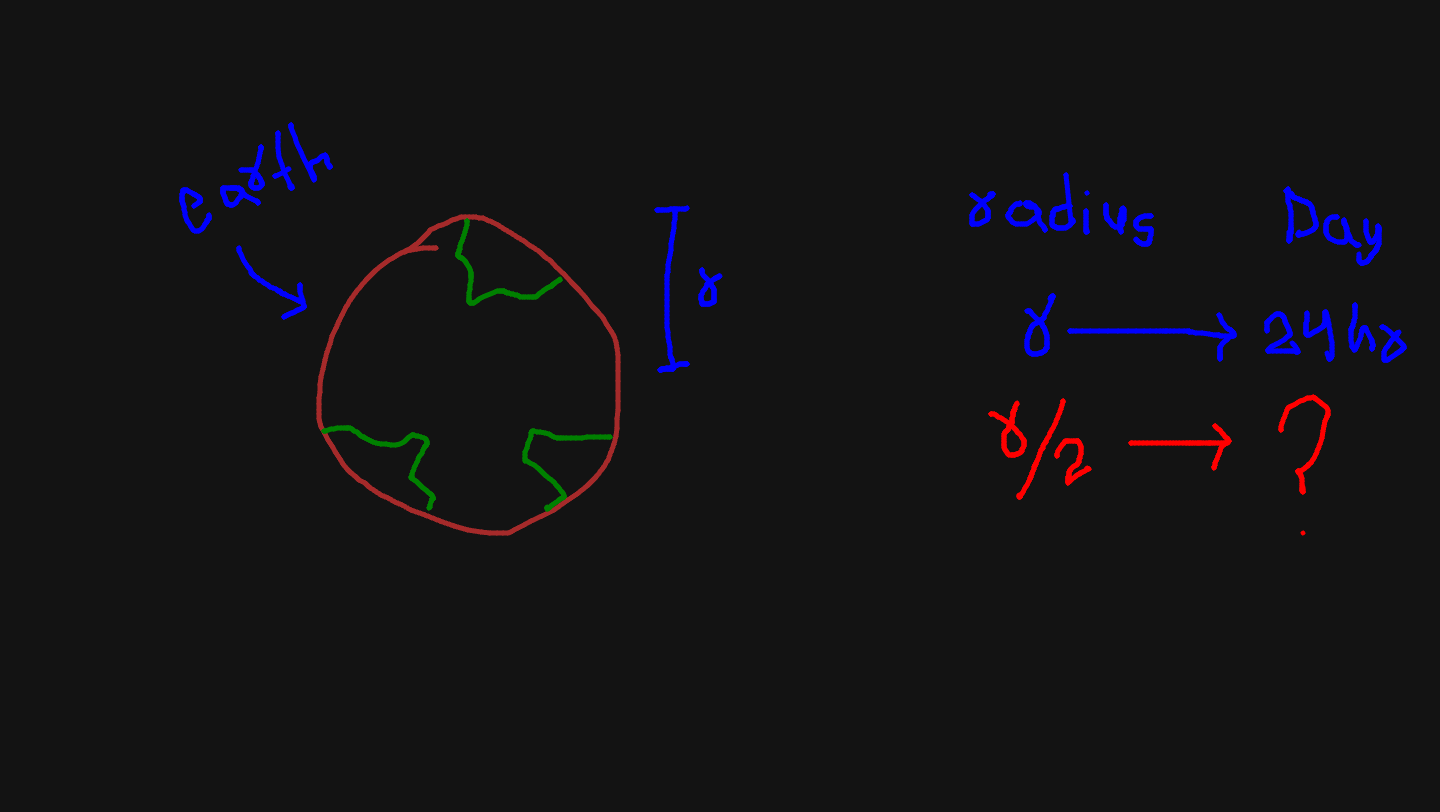 earth
r
radius Day
r → 24hr
r/2 → ?